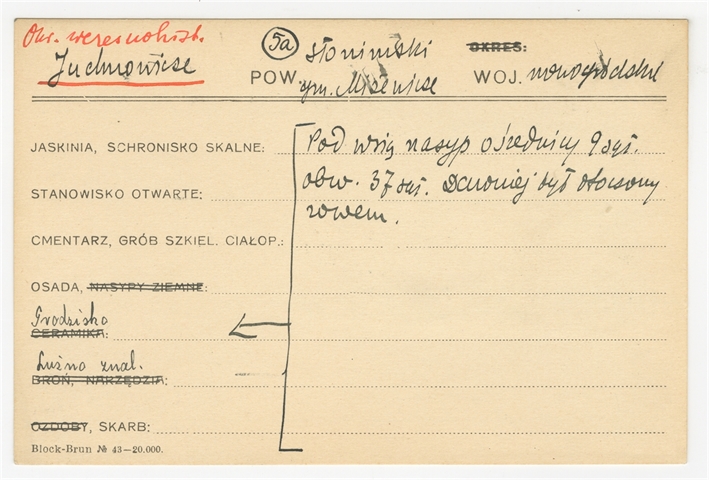 Okr. wczesnohist.
Juchnowicze
5a
POW. słonimski
gm. Mizewicze
OKRES:
WOJ. nowogródzki
JASKINIA, SCHRONISKO SKALNE:
STANOWISKO OTWARTE:
CMENTARZ, GRÓB SZKIEL. CIAŁOP.:
OSADA, NASYPY ZIEMNE:
Grodzisko
CERAMIKA:
Luźno znal.
BROŃ, NARZĘDZIA:
OZDOBY, SKARB:
Block-Brun № 43—20.000.
Pod wsią nasyp o średnicy 9 sąż.
obw. 37 sąż. Dawniej był otoczony
rowem.